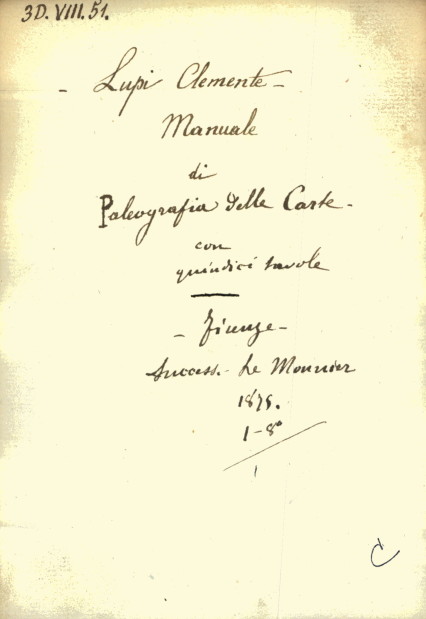 3D. VIII. 51.
- Lupi Clemente -
Manuale
di
Paleografia delle Carte -
con
quindici tavole
- Firenze -
Success. Le Monnier
1875.
1-8°
1
C